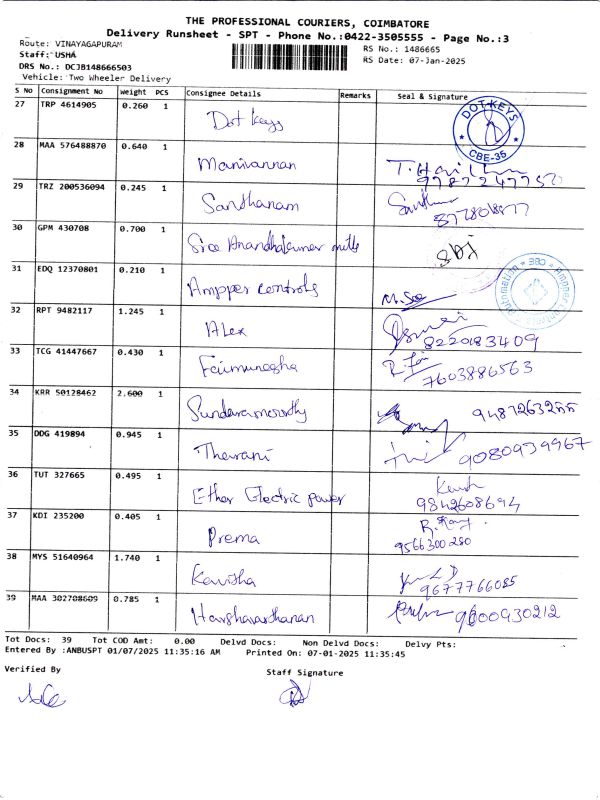 THE PROFESSIONAL COURIERS, COIMBATORE
Delivery Runsheet - SPT - Phone No.:0422-3505555 - Page No.:3
Route: VINAYAGAPURAM RS No.: 1486665
Staff: USHA RS Date: 07-Jan-2025
DRS No.: DCJB148666503
Vehicle: Two Wheeler Delivery
S No Consignment No Weight PCS Consignee Details Remarks Seal & Signature
27 TRP 4614905 0.260 1 Dot Keys DOT KEYS CBE-35
28 MAA 576488870 0.640 1 Manivannan
29 TRZ 200536094 0.245 1 Santhanam
30 GPM 430708 0.700 1 Sree Anandhakumar mills
31 EDQ 12370801 0.210 1 Ampper controls
32 RPT 9482117 1.245 1 Alex 8220183409
33 TCG 41447667 0.430 1 7603886563
34 KRR 50128462 2.600 1 Sundaramoorthy
35 DDG 419894 0.945 1 Tharani 9080939967
36 TUT 327665 0.495 1 Ether Electric power 9842608694
37 KDI 235200 0.405 1 Prema 9566300280
38 MYS 51640964 1.740 1 Kavisha 9677766085
39 MAA 302708609 0.785 1 Harshavardhanan 9600930212
Tot Docs: 39 Tot COD Amt: 0.00 Delvd Docs: Non Delvd Docs: Delvy Pts:
Entered By :ANBUSPT 01/07/2025 11:35:16 AM Printed On: 07-01-2025 11:35:45
Verified By Staff Signature